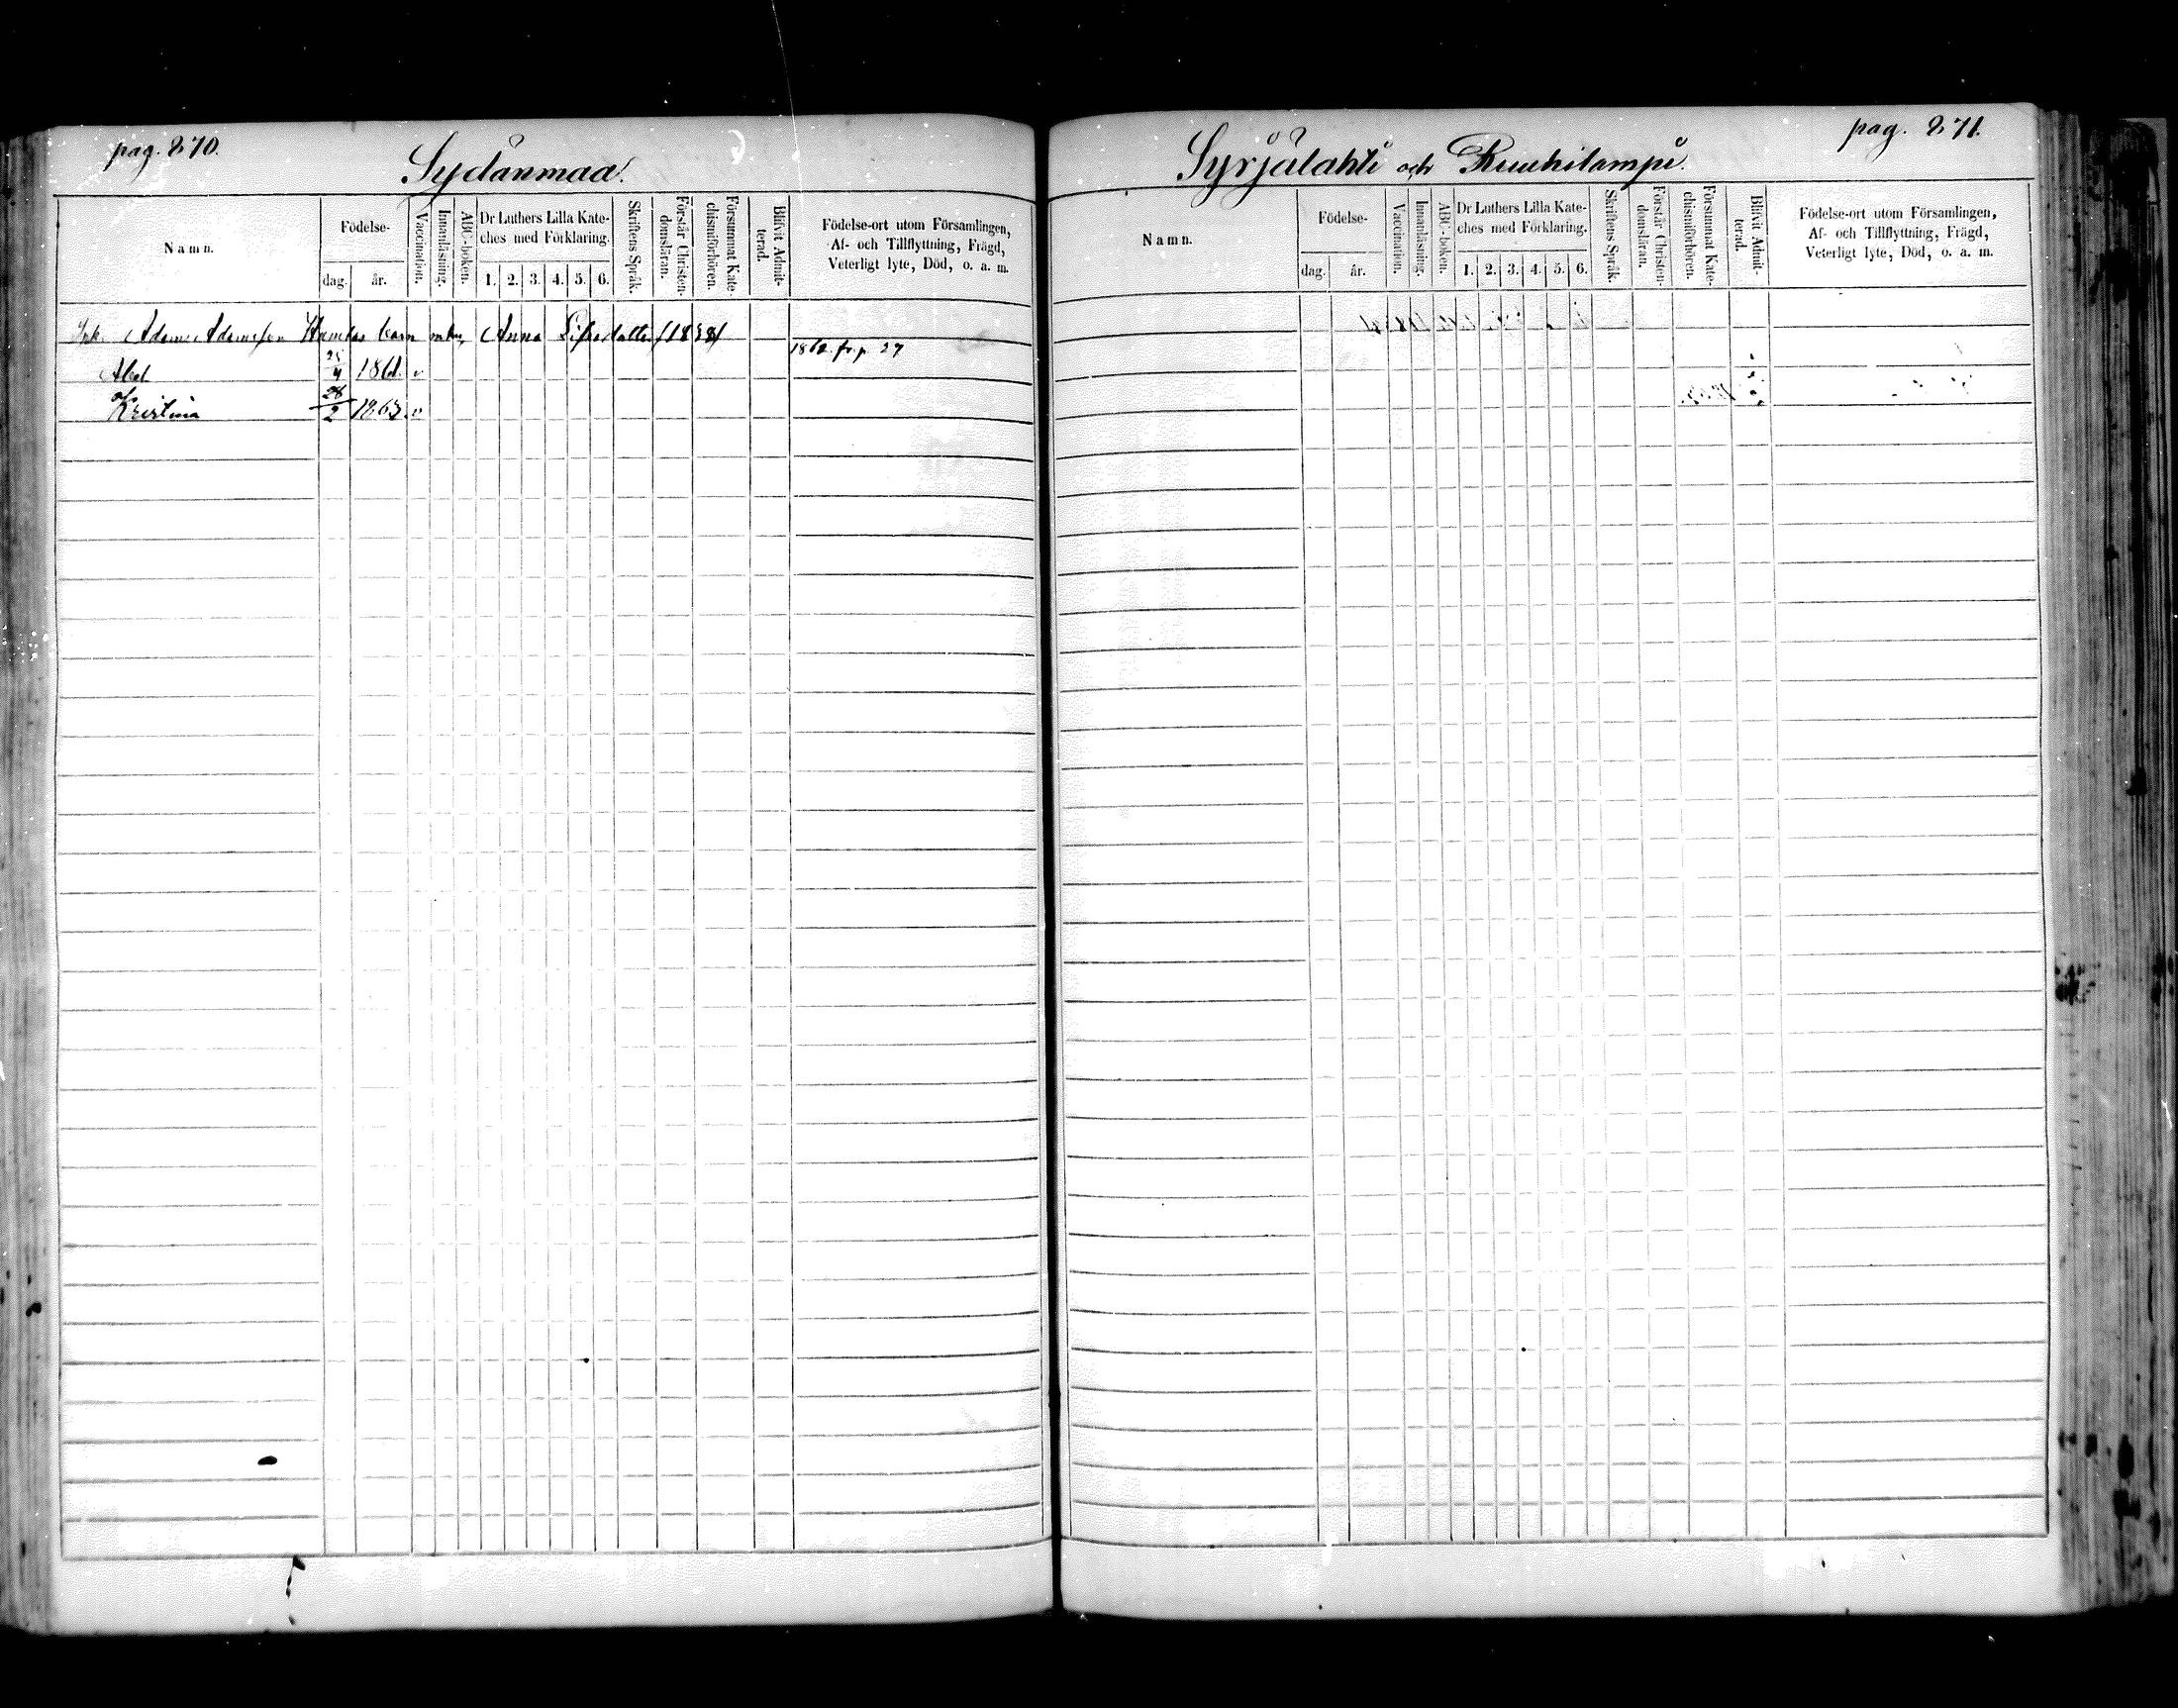 pag. 270.
Sydänmaa.
Namn.
Födelse-
dag.
år.
Vaccination.
Innanläsning.
ABC-boken.
Dr Luthers Lilla Kate-
ches med Förklaring.
1. 2. 3. 4. 5. 6.
Skriftens Språk.
Förstår Christen-
domsläran.
Försummat Kate-
chismiförhören.
Blifvit Admit-
terad.
Födelse-ort utom Församlingen,
Af- och Tillflyttning, Frägd,
Veterligt lyte, Död, o. a. m.
Adam Adamsson barn Anna
1862 fr. p. 27
Abel 25/4 1861. v
Kristina 28/2 1863. v
pag. 271.
Syrjälahti och Ruuhilampi.
Namn.
Födelse-
dag.
år.
Vaccination.
Innanläsning.
ABC-boken.
Dr Luthers Lilla Kate-
ches med Förklaring.
1. 2. 3. 4. 5. 6.
Skriftens Språk.
Förstår Christen-
domsläran.
Försummat Kate-
chismiförhören.
Blifvit Admit-
terad.
Födelse-ort utom Församlingen,
Af- och Tillflyttning, Frägd,
Veterligt lyte, Död, o. a. m.